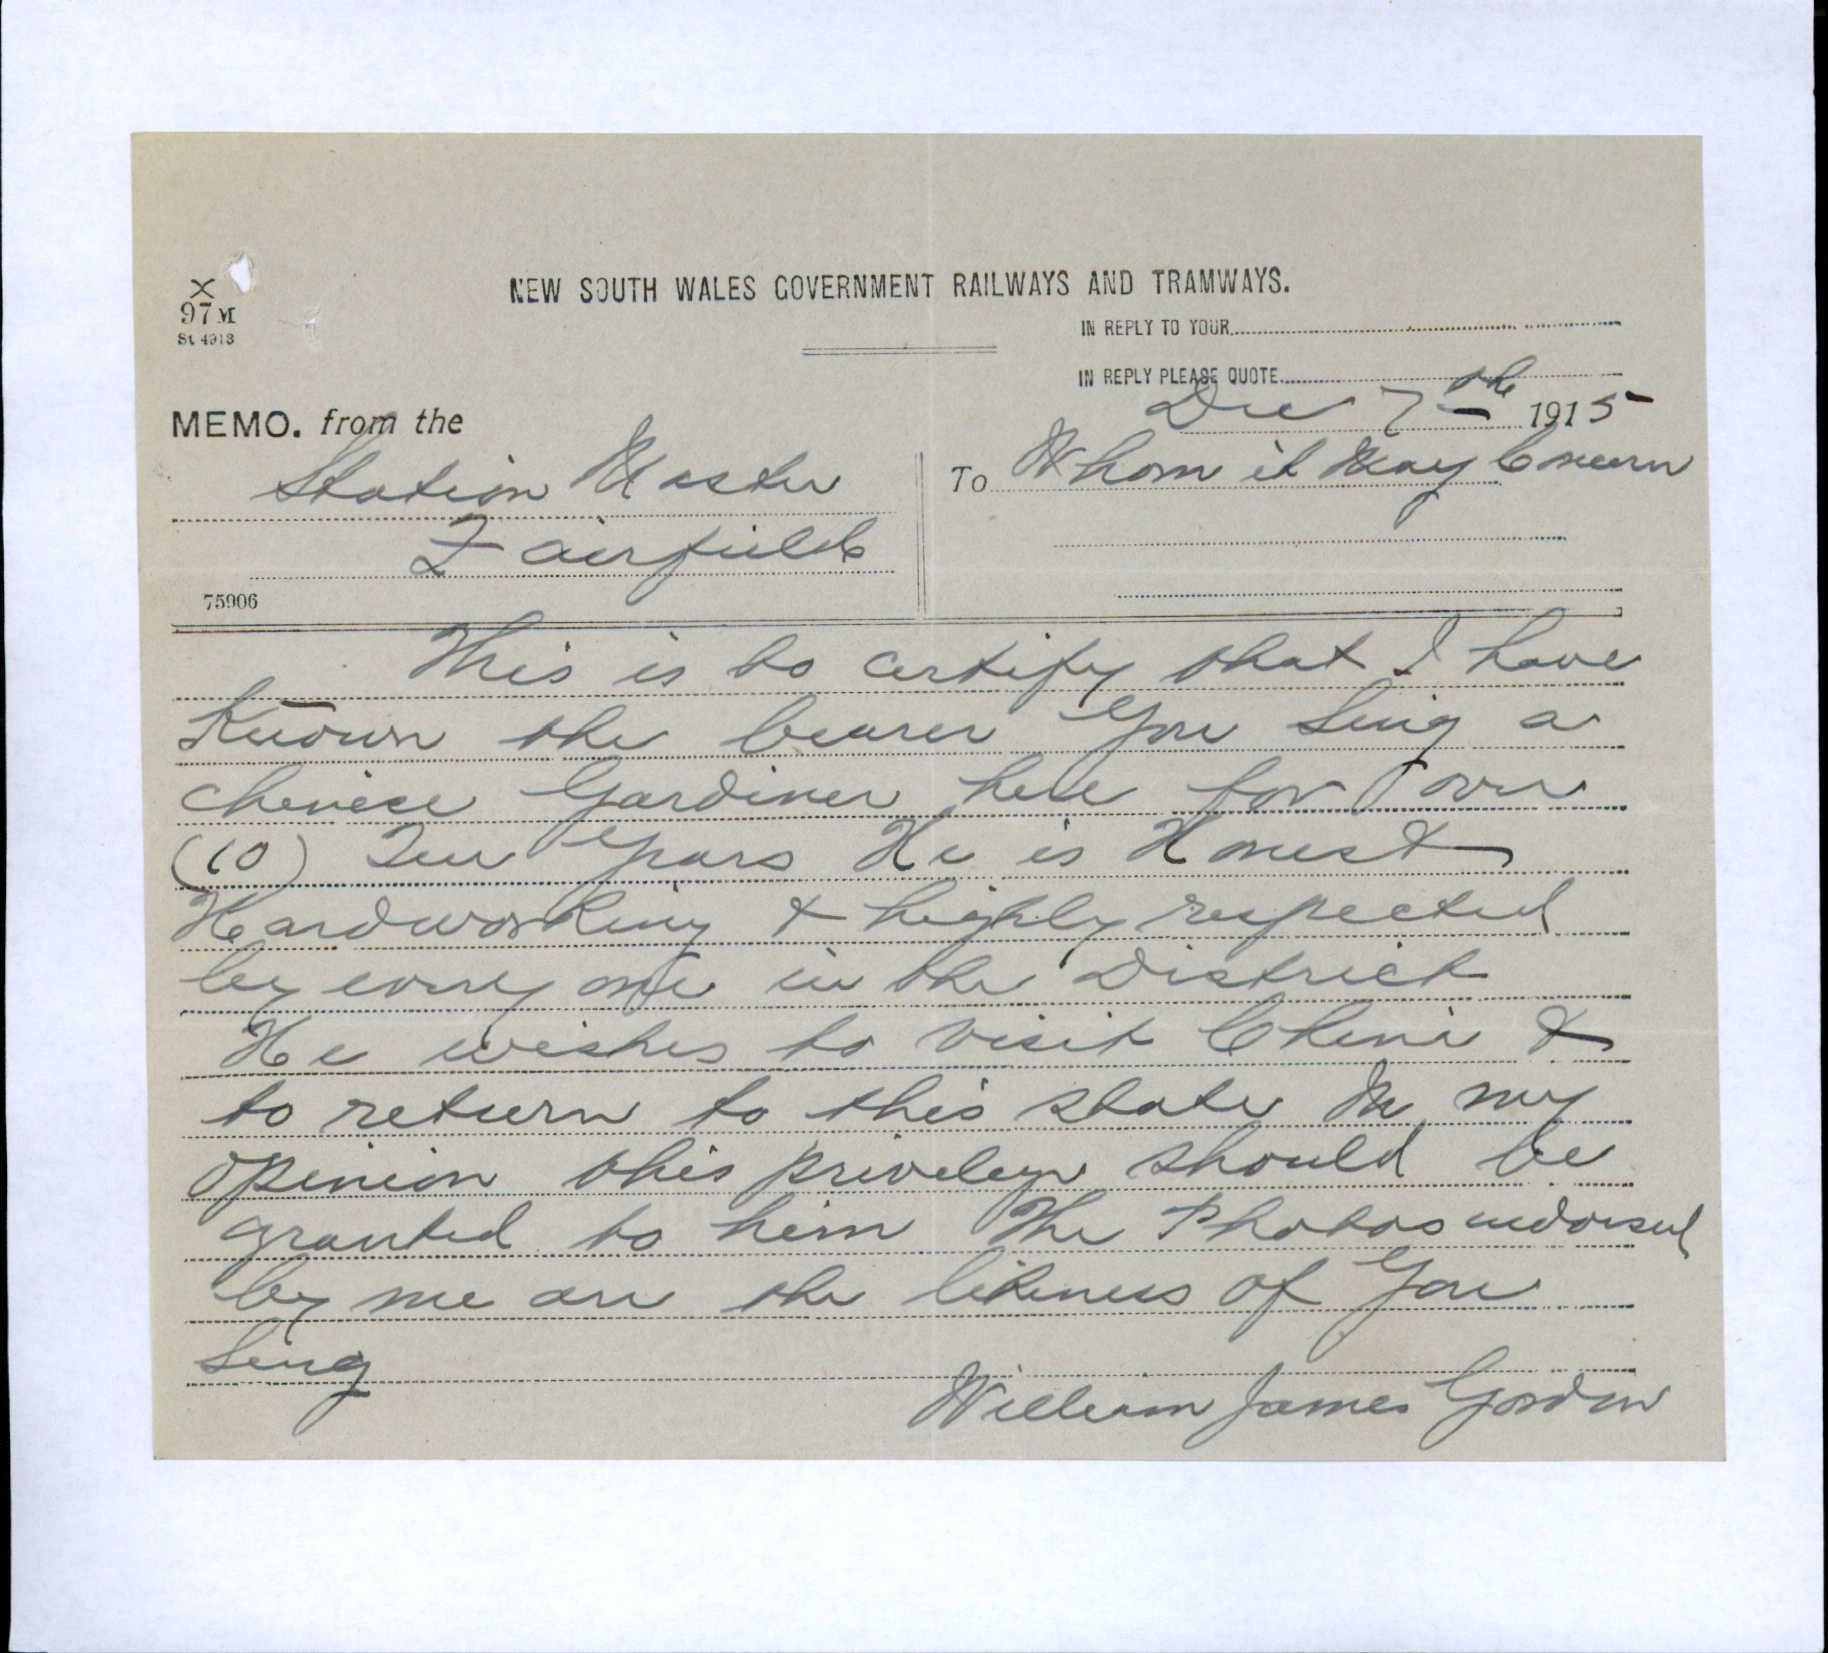 X
97 M
St 4913
NEW SOUTH WALES GOVERNMENT RAILWAYS AND TRAMWAYS.
IN REPLY TO YOUR
IN REPLY PLEASE QUOTE
Dec 7th 1915
MEMO. from the
Station Master
Fairfield
To Whom it May Concern
75906
This is to certify that I have
Known the bearer You Sing a
Chinese Gardiner here for over
(10) Ten Years He is Honest
Hardworking & highly respected
by every one in the District
He wishes to visit China &
to return to this state In my
opinion this privelege should be
granted to him The Photos endorsed
by me are the likeness of You
Sing
William James Gordon